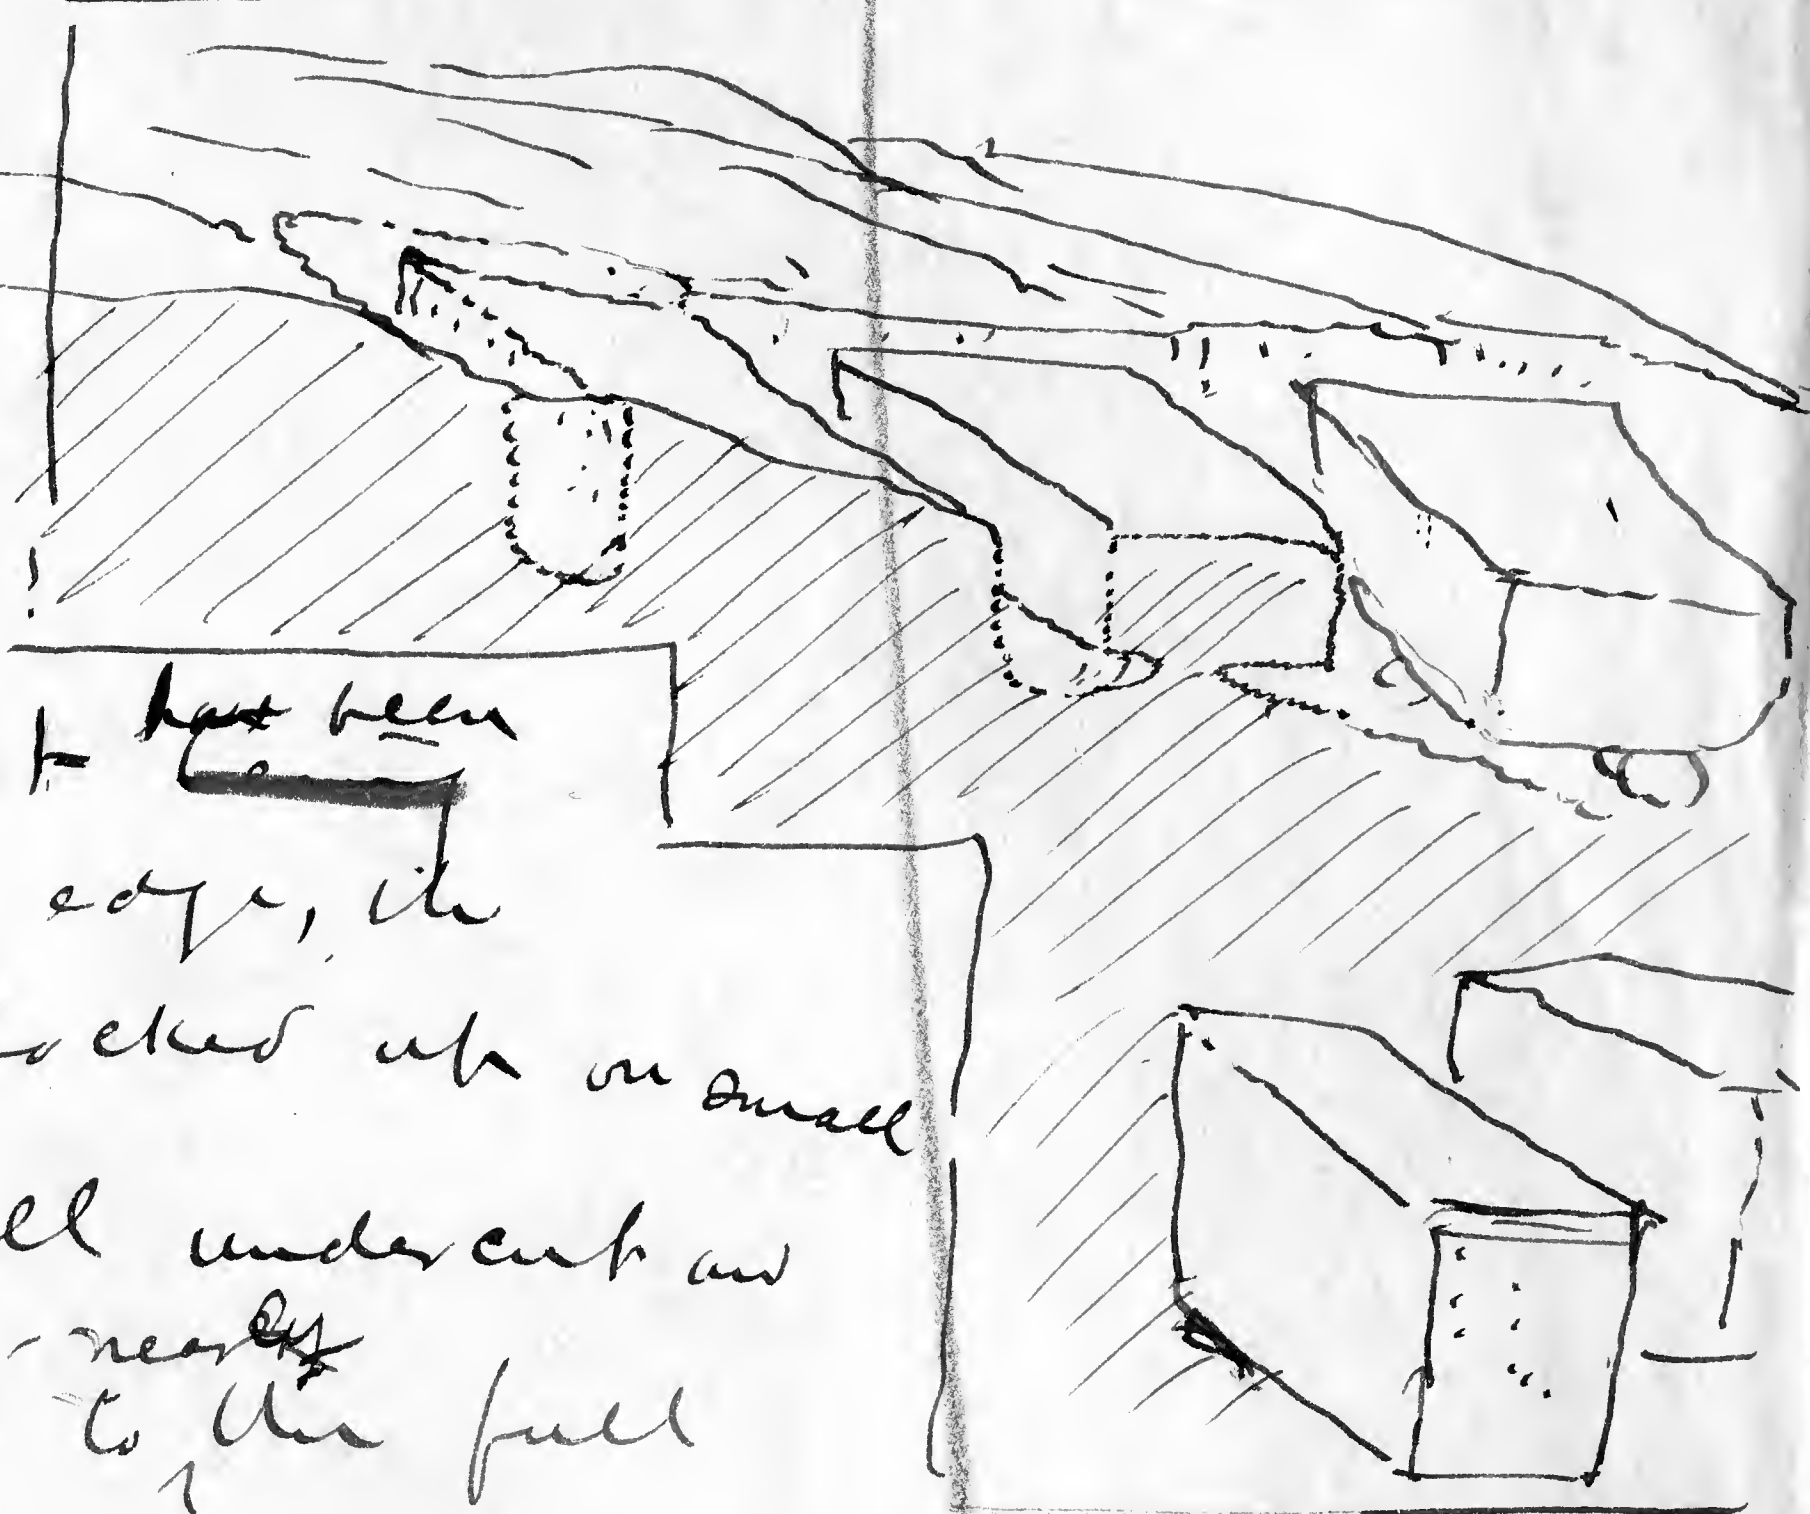 has been
edge, the
ocked up on small
ell undercut and
nearly
to the full